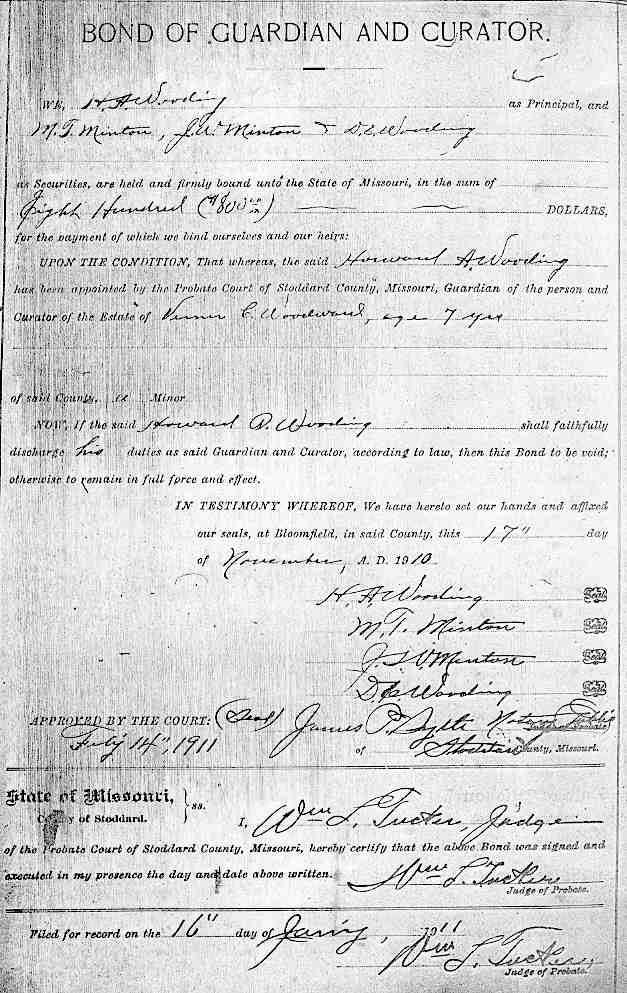 BOND OF GUARDIAN AND CURATOR.
WE, H. A. Wooding as Principal, and
M. T. Minton, J. W. Minton & D. C. Wooding
as Securities, are held and firmly bound unto the State of Missouri, in the sum of
Eight Hundred ($800.00) DOLLARS,
for the payment of which we bind ourselves and our heirs:
UPON THE CONDITION, That whereas, the said Howard A. Wooding
has been appointed by the Probate Court of Stoddard County, Missouri, Guardian of the person and
Curator of the Estate of Verner C. Woodward, age 7 yrs
of said County, a Minor
NOW, If the said Howard A. Wooding shall faithfully
discharge his duties as said Guardian and Curator, according to law, then this Bond to be void;
otherwise to remain in full force and effect.
IN TESTIMONY WHEREOF, We have hereto set our hands and affixed
our seals, at Bloomfield, in said County, this 17" day
of November, A. D. 1910
H. A. Wooding Seal
M. T. Minton Seal
J. W. Minton Seal
D. C. Wooding Seal
APPROVED BY THE COURT: (Seal) James P. Notary Public
Feby 14", 1911 of Stoddard County, Missouri.
State of Missouri,
County of Stoddard. ss.
I, Wm L. Tucker, Judge
of the Probate Court of Stoddard County, Missouri, hereby certify that the above Bond was signed and
executed in my presence the day and date above written. Wm L. Tucker
Judge of Probate.
Filed for record on the 16" day of Jany, 1911
Wm L. Tucker
Judge of Probate.